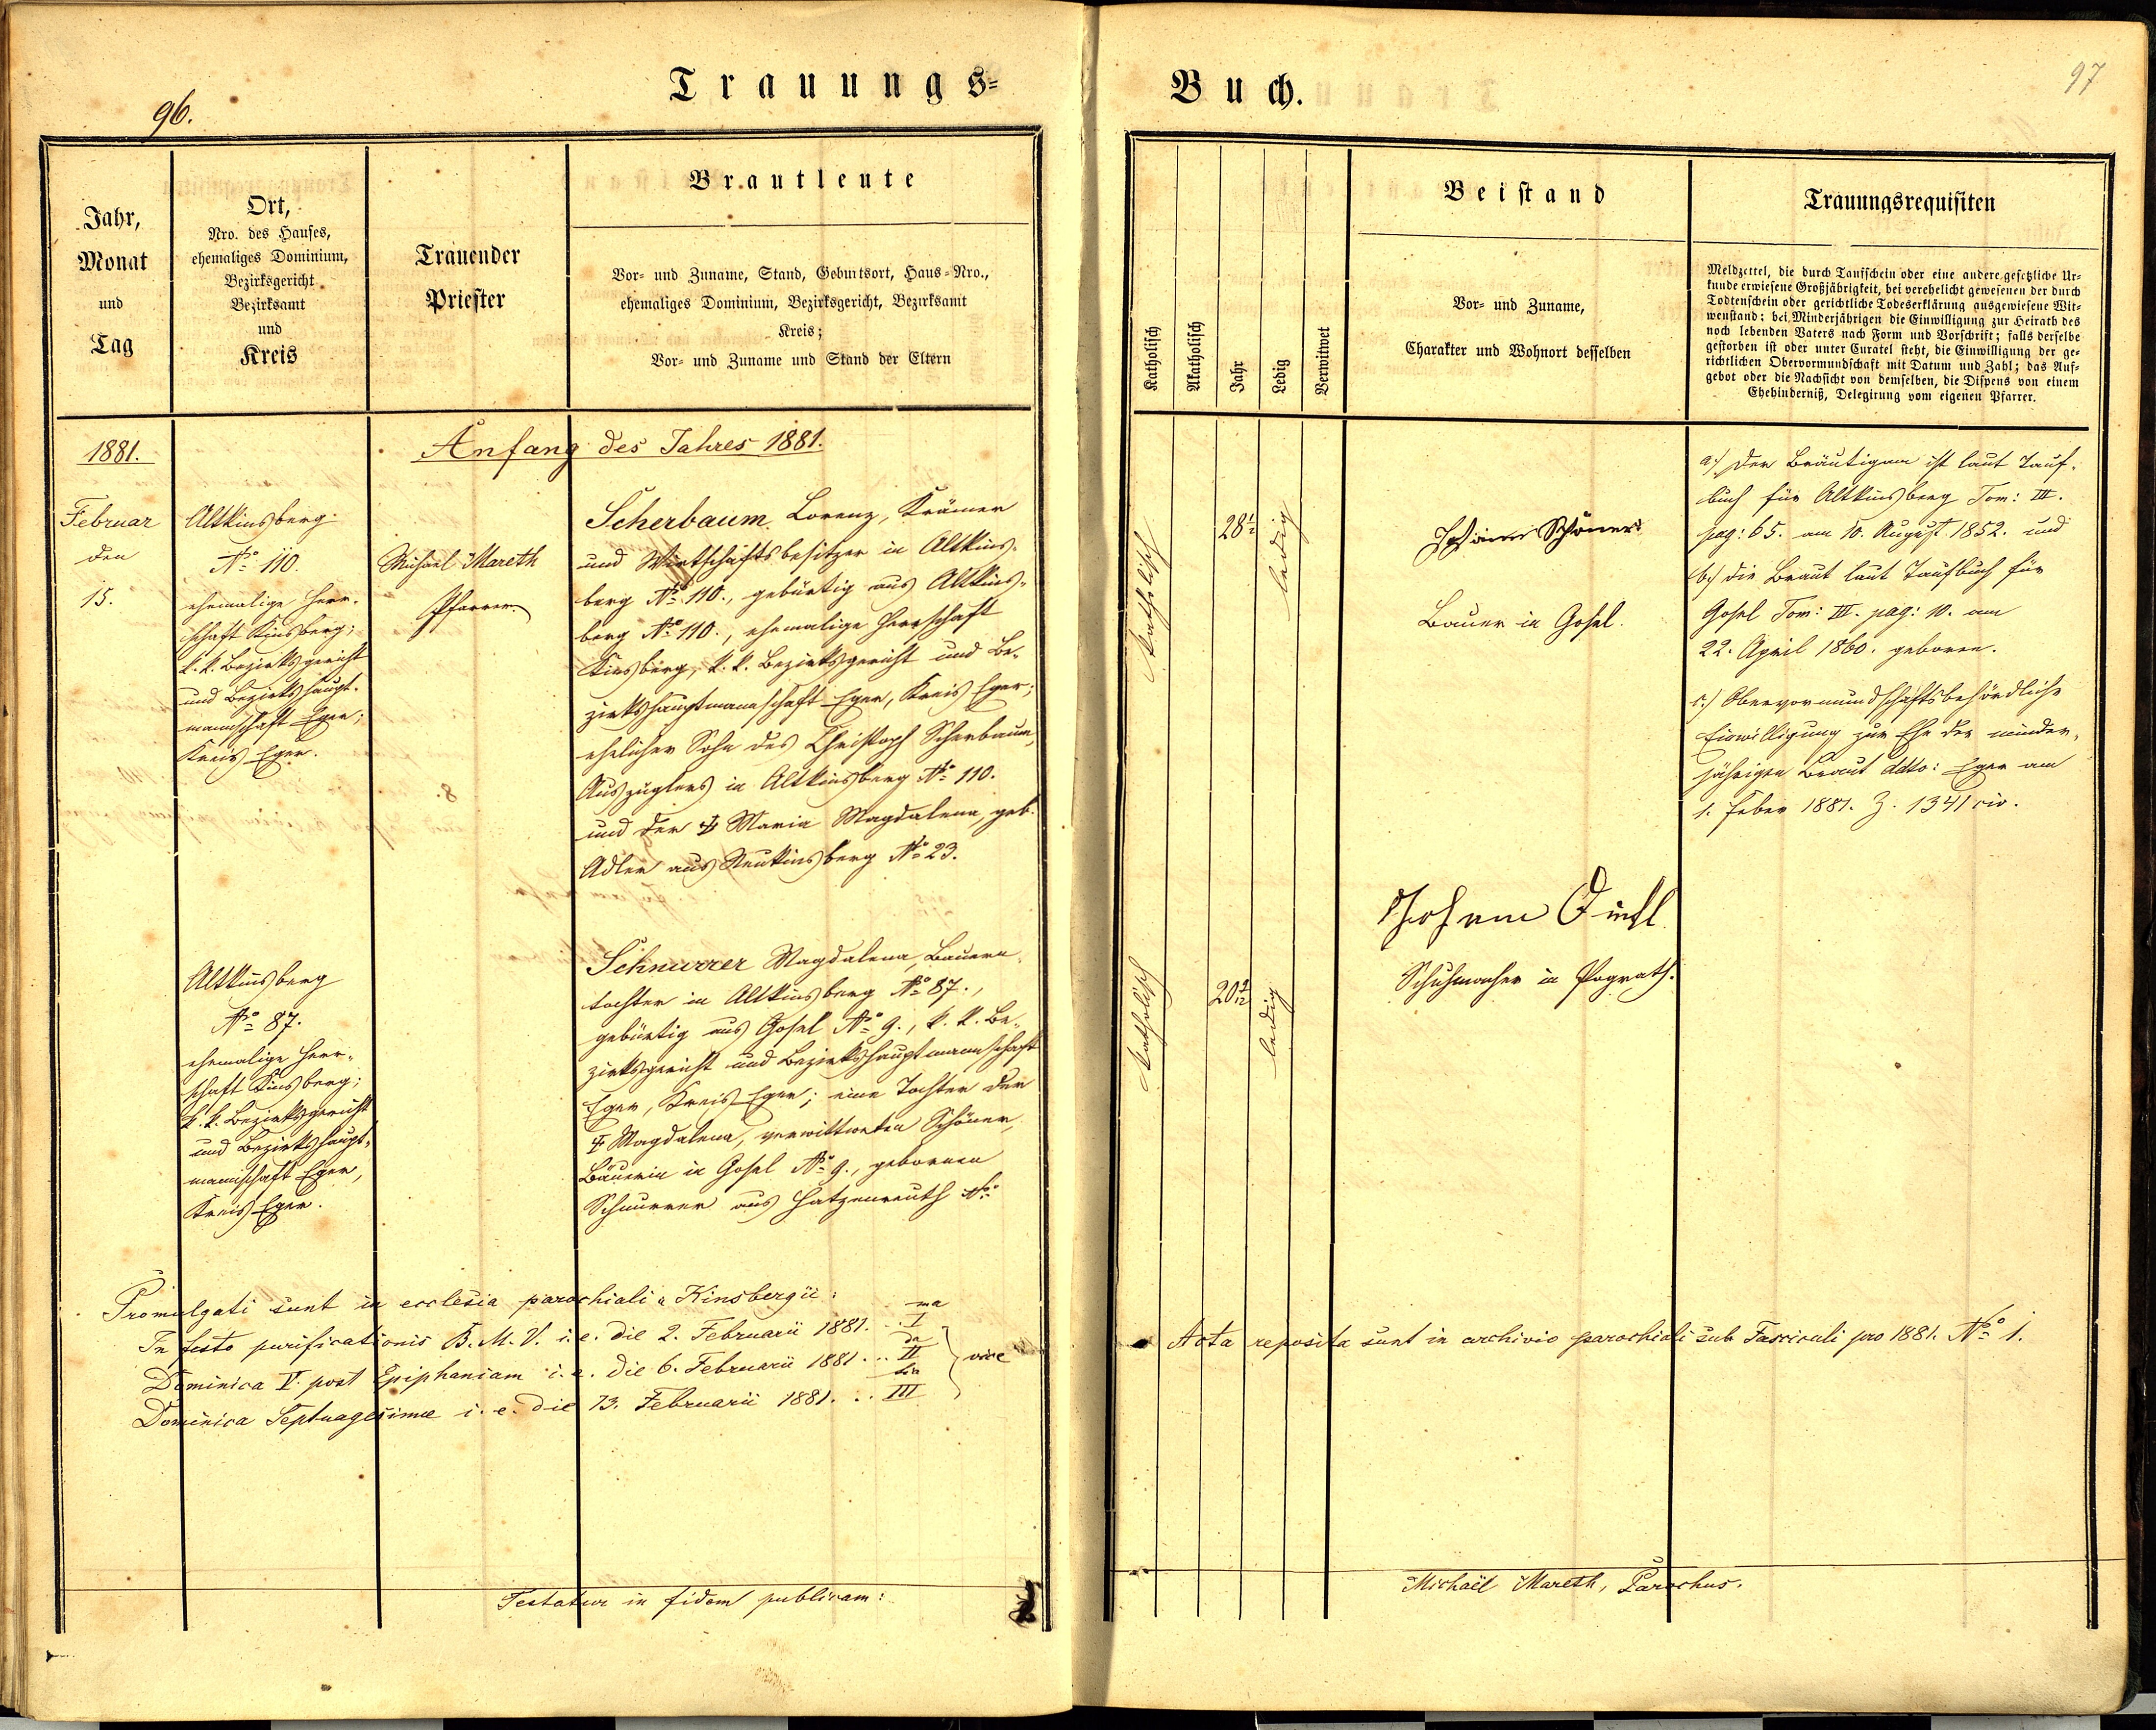 Trauungs=
96.
Jahr,
Monat
und
Tag
Ort,
Nro. des Hauses,
ehemaliges Dominium,
Bezirksgericht
Bezirksamt
und
Kreis
Trauender
Priester
Brautleute
Vor- und Zuname, Stand, Geburtsort, Haus-Nro.,
ehemaliges Dominium, Bezirksgericht, Bezirksamt
Kreis;
Vor- und Zuname und Stand der Eltern
1881.
Anfang des Jahres 1881.
Februar
den
15.
Altkinsberg
No 110.
ehemalige Herr-
schaft Kinsberg;
k. k. Bezirksgericht
und Bezirkshaupt-
mannschaft Eger;
Kreis Eger.
Michael Mareth
Pfarrer.
Scherbaum Lorenz, Krämer
und Wirtschaftsbesitzer in Altkins-
berg No 110., gebürtig aus Altkins-
berg No 110., ehemalige Herrschaft
Kinsberg, k. k. Bezirksgericht und Be-
zirkshauptmannschaft Eger, Kreis Eger;
ehelicher Sohn des Christoph Scherbaum,
Auszüglers in Altkinsberg No 110.
und der ‡ Maria Magdalena, geb.
Adler aus Neukinsberg No 23.
Altkinsberg
No 87.
ehemalige Herr-
schaft Kinsberg;
k. k. Bezirksgericht
und Bezirkshaupt-
mannschaft Eger,
Kreis Eger.
Schnurrer Magdalena, Bauern-
tochter in Altkinsberg No 87.,
gebürtig aus Gosel No 9., k. k. Be-
zirksgericht und Bezirkshauptmannschaft
Eger, Kreis Eger; eine Tochter der
‡ Magdalena, verwittweten Schöner,
Bäuerin in Gosel No 9., gebornen
Schnurrer aus Hatzenreuth No
Promulgati sunt in ecclesia parochiali Kinsbergii:
In festo purificationis B. M. V. i. e. die 2. Februarii 1881. .. I ma
Dominica V. post Epiphaniam i. e. die 6. Februarii 1881. .. II da } vice
Dominica Septuagesimae i. e. die 13. Februarii 1881. .. III tia
Testatur in fidem publicam:
Buch.
97
Katholisch
Akatholisch
Jahr
Ledig
Verwitwet
Beistand
Vor- und Zuname,
Charakter und Wohnort desselben
Trauungsrequisiten
Meldzettel, die durch Taufschein oder eine andere gesetzliche Ur-
kunde erwiesene Großjährigkeit, bei verehelicht gewesenen der durch
Todtenschein oder gerichtliche Todeserklärung ausgewiesene Wit-
wenstand; bei Minderjährigen die Einwilligung zur Heirath des
noch lebenden Vaters nach Form und Vorschrift; falls derselbe
gestorben ist oder unter Curatel steht, die Einwilligung der ge-
richtlichen Obervormundschaft mit Datum und Zahl; das Auf-
gebot oder die Nachsicht von demselben, die Dispens von einem
Ehehinderniß, Delegirung vom eigenen Pfarrer.
katholisch
28½
ledig
Johann Schöner
Bauer in Gosel.
a.) Der Bräutigam ist laut Tauf-
buch für Altkinsberg Tom: III.
pag: 65. am 10. August 1852. und
b.) die Braut laut Taufbuch für
Gosel Tom: III. pag: 10. am
22. April 1860. geboren.
c.) Obervormundschaftsbehördliche
Einwilligung zur Ehe der minder-
jährigen Braut ddto: Eger am
1. Feber 1881. Z. 1341 civ.
katholisch
ledig
Johann
Schuhmacher in Pograth.
Acta reposita sunt in archivio parochiali sub Fasciculi pro 1881. No 1.
Michaël Mareth, Parochus.